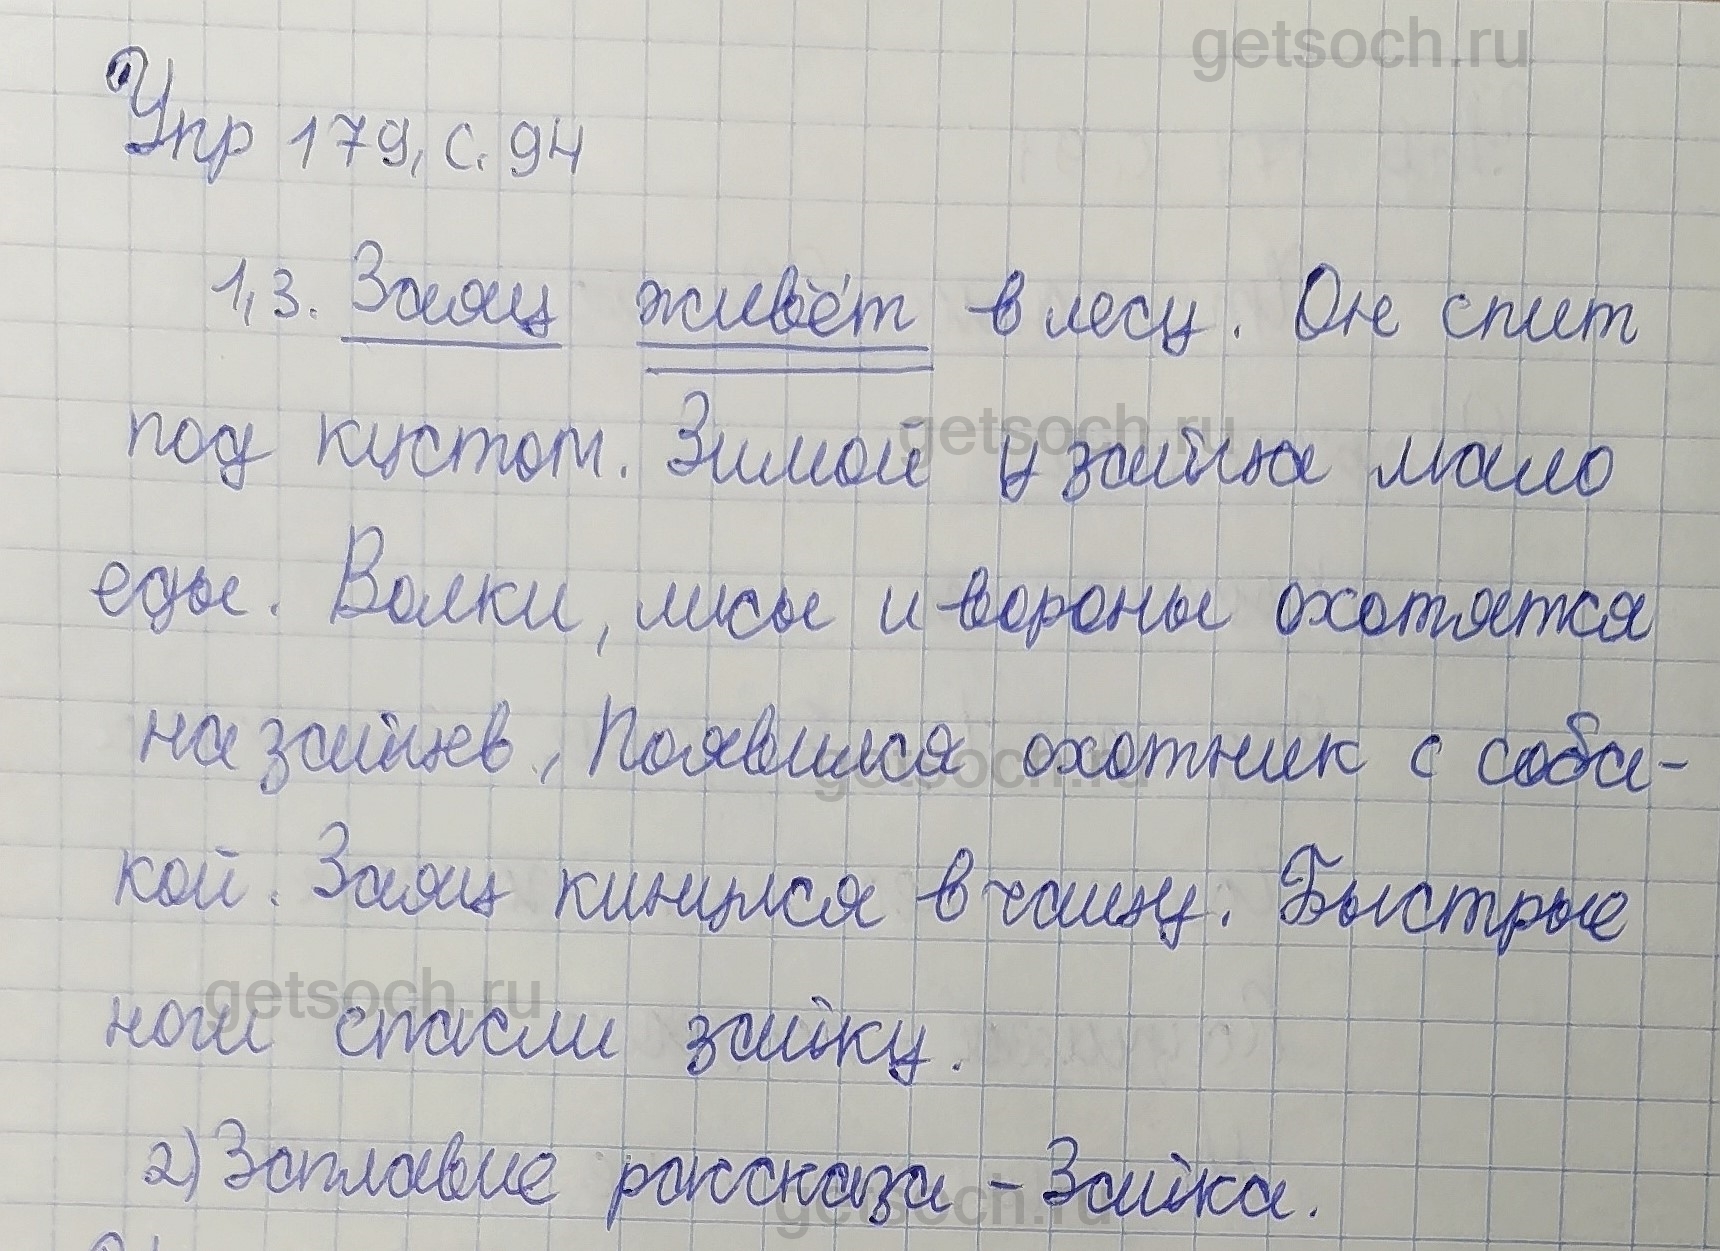 getsoch.ru
Упр 179, с. 94
1,3. Заяц живёт в лесу. Он спит
getsoch.ru
под кустом. Зимой у зайца мало
еды. Волки, лисы и вороны охотятся
на зайцев. Появился охотник с соба-
getsoch.ru
кой. Заяц кинулся в чащу. Быстрые
getsoch.ru
ноги спасли зайку.
2) Заглавие рассказа – Зайка.
getsoch.ru